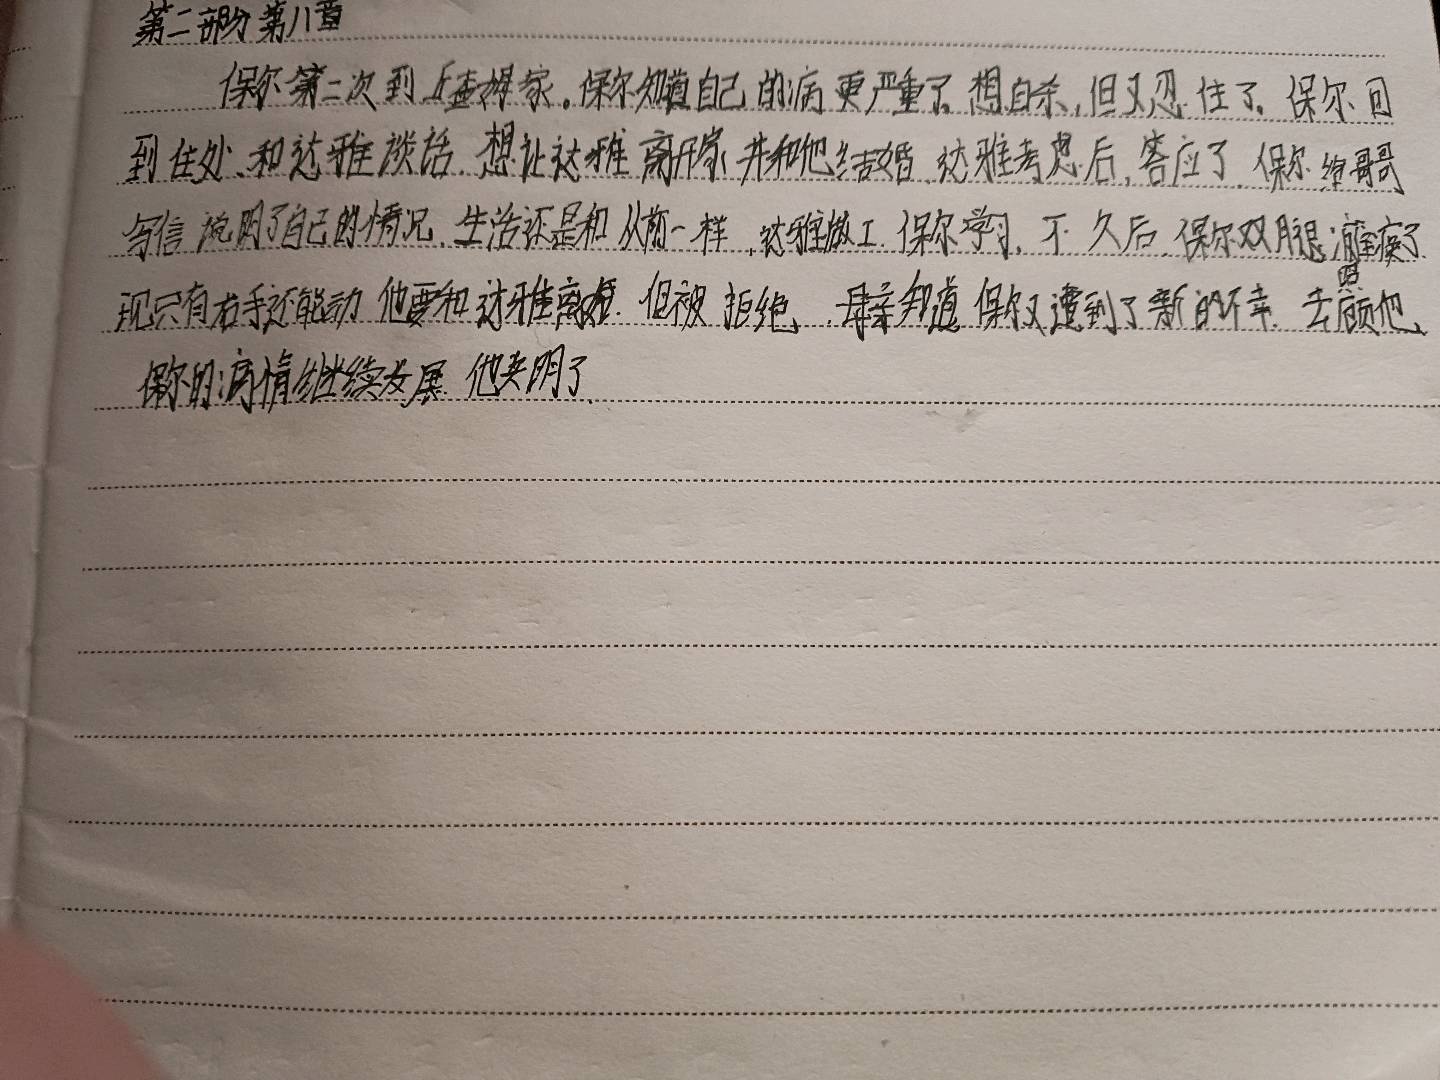 第二部分第八章
保尔第二次到丘查姆家。保尔知道自己的病更严重了。想自杀,但又忍住了。保尔回
到住处、和达雅谈话。想让达雅离开家并和他结婚,达雅考虑后,答应了。保尔给哥哥
写信说明了自己的情况。生活还是和从前一样,达雅做工,保尔学习,不久后,保尔双腿瘫痪了
现只有右手还能动 他要和达雅离婚.但被拒绝,母亲知道保尔又遭到了新的不幸.去照顾他,
保尔的病情继续发展 他失明了.